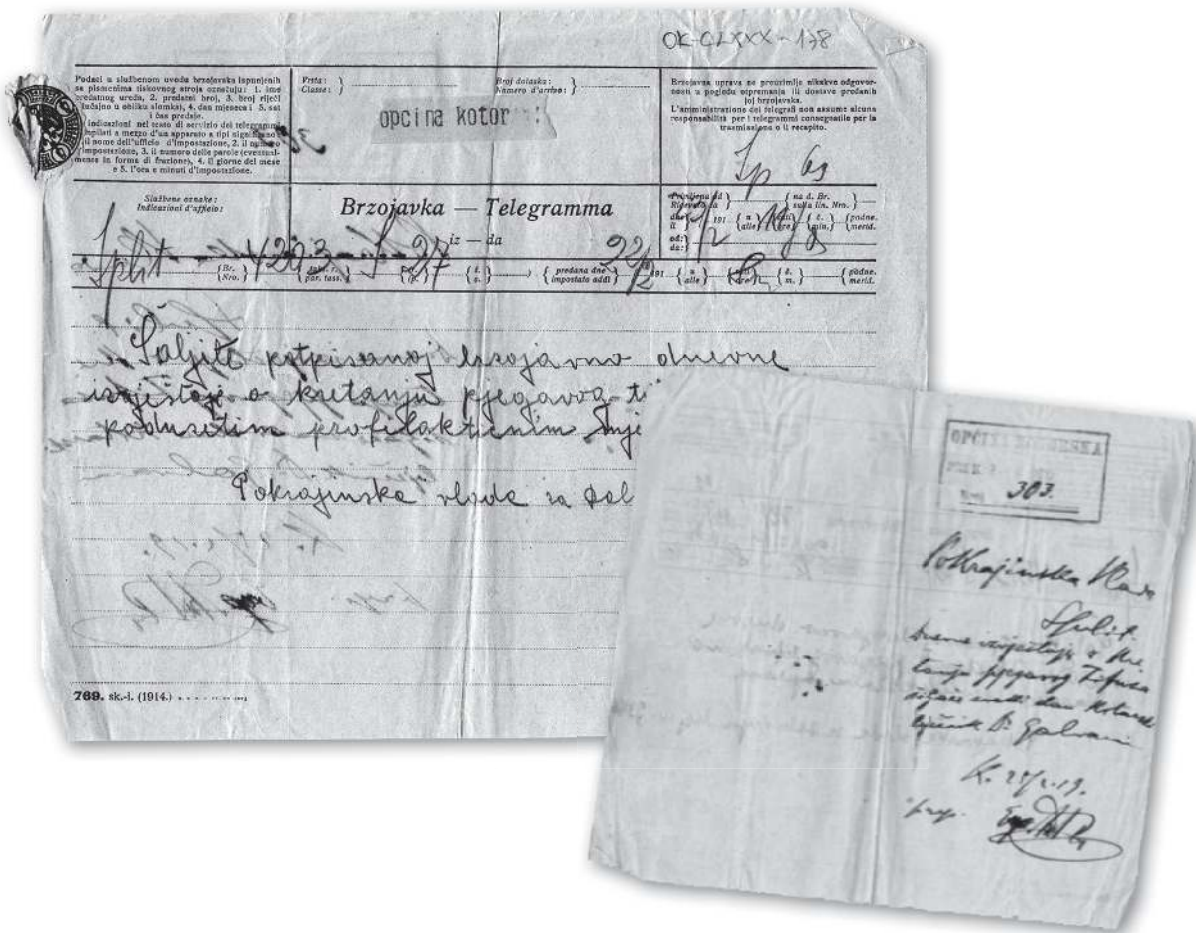 OK-CLXXX-178
Podaci u službenom uvodu brzojavka ispunjenih
sa pismenima tiskovnog stroja označuju: 1. ime
predatnog ureda, 2. predatni broj, 3. broj riječi
(slučajno u obliku slomka), 4. dan mjeseca i 5. sat
i čas predaje.
Indicazioni nel testo di servizio dei telegrammi
compilati a mezzo d'un apparato a tipi significano
il nome dell'ufficio d'impostazione, 2. il numero
d'impostazione, 3. il numero delle parole (eventual-
mente in forma di frazione), 4. il giorno del mese
e 5. l'ora e minuti d'impostazione.
Vrsta:
Classe:
Broj dolaska:
Numero d'arrivo:
opcina kotor
Brzojavna uprava ne preuzimlje nikakve odgovor-
nosti u pogledu otpremanja ili dostave predanih
joj brzojavaka.
L'amministrazione dei telegrafi non assume alcuna
responsabilità per i telegrammi consegnatile per la
trasmissione o il recapito.
Službene oznake:
Indicazioni d'ufficio:
Brzojavka — Telegramma
iz — da
na d. Br.
sulla lin. Nro.
dne
li
191
u
alle
č.
min.
podne.
merid.
od:
da:
Split
Br.
Nro.
4203
par. tass.
27
predana dne
impostato addì
22/2
191
u
alle
podne.
merid.
Šaljite potpisanoj brzojavno dnevne
izvještaje o kretanju pjegavog
poduzetim profilaktičnim mje
Pokrajinska vlada za Dal
769. sk.-i. (1914.)
OPĆINA KOTORSKA
303.
Pokrajinska Vlada
Split.
Dnevne izvještaje o kre-
tanju pjegavog Tifusa
šiljaće svaki dan Kotarski
liječnik Dr Galvani
K. 25/2.19.